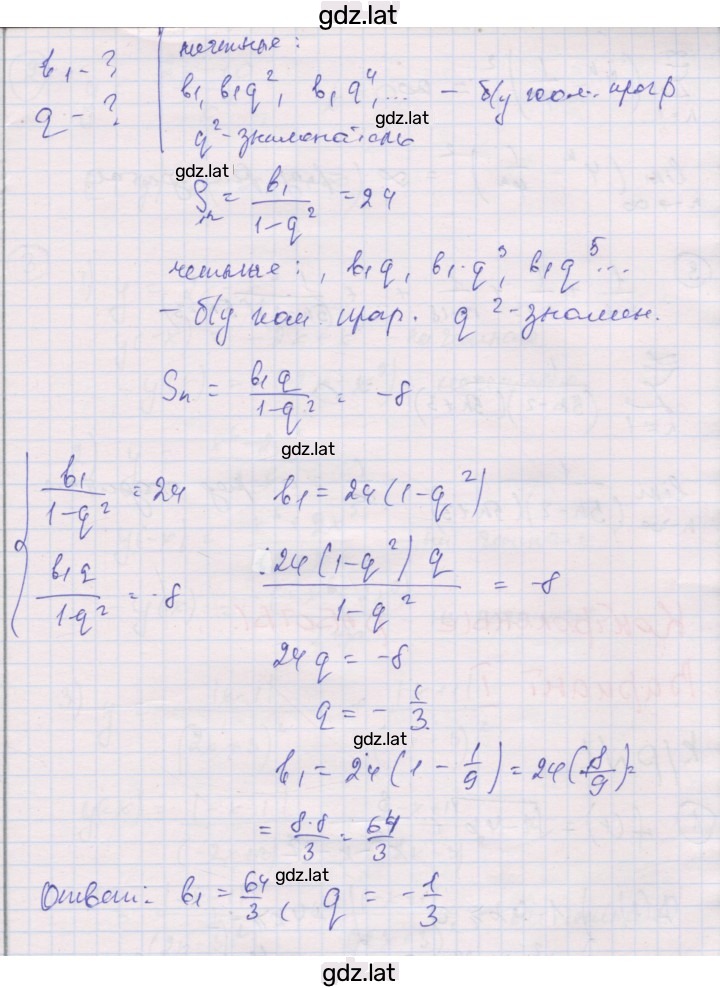 gdz.lat
b₁ - ?
q - ?
нечетные :
b₁, b₁q², b₁q⁴, ... — б/у геом. прогр
gdz.lat
q² - знаменатель
gdz.lat
Sₙ = b₁/(1-q²) = 24
четные : , b₁q, b₁·q³, b₁q⁵ ...
— б/у геом. прогр. q² - знамен.
Sₙ = b₁q/(1-q²) = -8
gdz.lat
{ b₁/(1-q²) = 24 b₁ = 24(1-q²)
b₁q/(1-q²) = -8 24(1-q²)q/(1-q²) = -8
24q = -8
q = - 1/3
gdz.lat
b₁ = 24(1 - 1/9) = 24(8/9) =
= 8·8/3 = 64/3
gdz.lat
Ответ: b₁ = 64/3, q = -1/3
gdz.lat